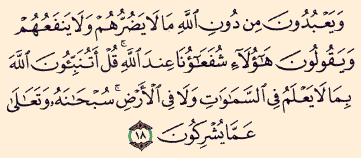 وَيَعْبُدُونَ مِن دُونِ ٱللَّهِ مَا لَا يَضُرُّهُمْ وَلَا يَنفَعُهُمْ
وَيَقُولُونَ هَٰٓؤُلَآءِ شُفَعَٰٓؤُنَا عِندَ ٱللَّهِ ۚ قُلْ أَتُنَبِّـُٔونَ ٱللَّهَ
بِمَا لَا يَعْلَمُ فِى ٱلسَّمَٰوَٰتِ وَلَا فِى ٱلْأَرْضِ ۚ سُبْحَٰنَهُۥ وَتَعَٰلَىٰ
عَمَّا يُشْرِكُونَ ١٨